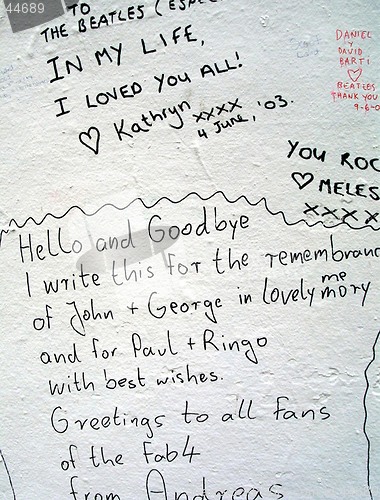 44689
TO
THE BEATLES (ESPE
IN MY LIFE,
I LOVED YOU ALL!
♡ Kathryn xxxx
4 JUNE, '03.
DANIEL
y
DAVID
BARTI
♡
BEATLES
THANK YOU
9-6-0
YOU ROC
♡ MELES
xxxx
Hello and Goodbye
I write this for the remembranc
of John + George in lovely me
mory
and for Paul + Ringo
with best wishes.
Greetings to all fans
of the Fab4
from Andreas